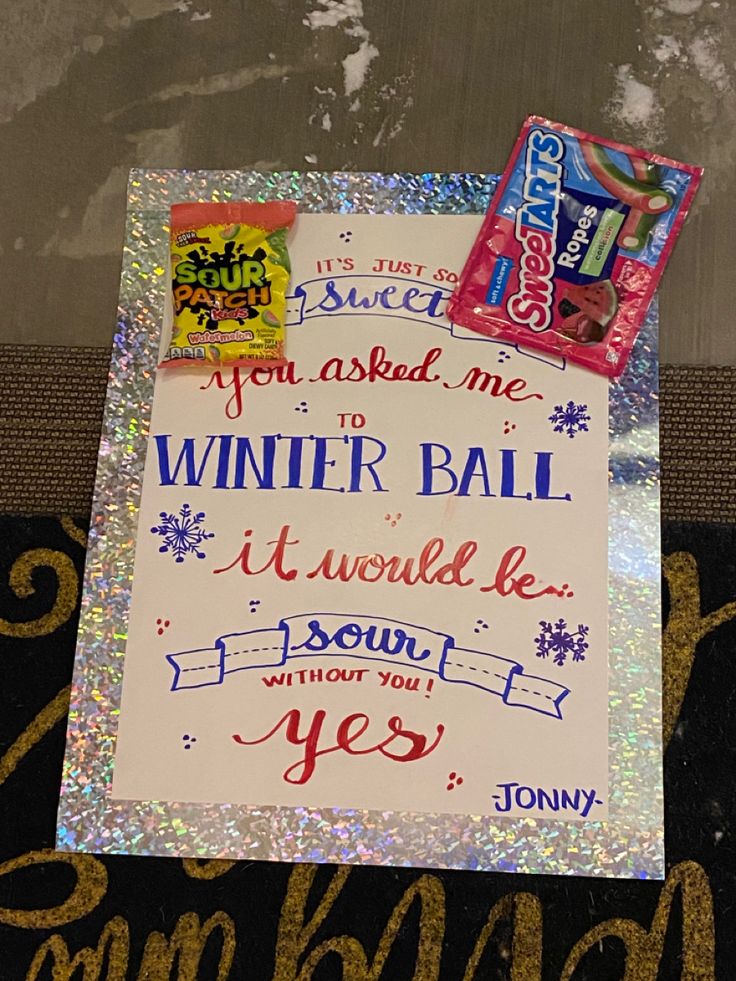 IT'S JUST SO
Sweet
you asked me
TO
WINTER BALL
it would be...
Sour
WITHOUT YOU!
Yes
-JONNY-
SOUR
PATCH
Kids
Watermelon
SweeTARTS
Ropes
soft & chewy!
collision